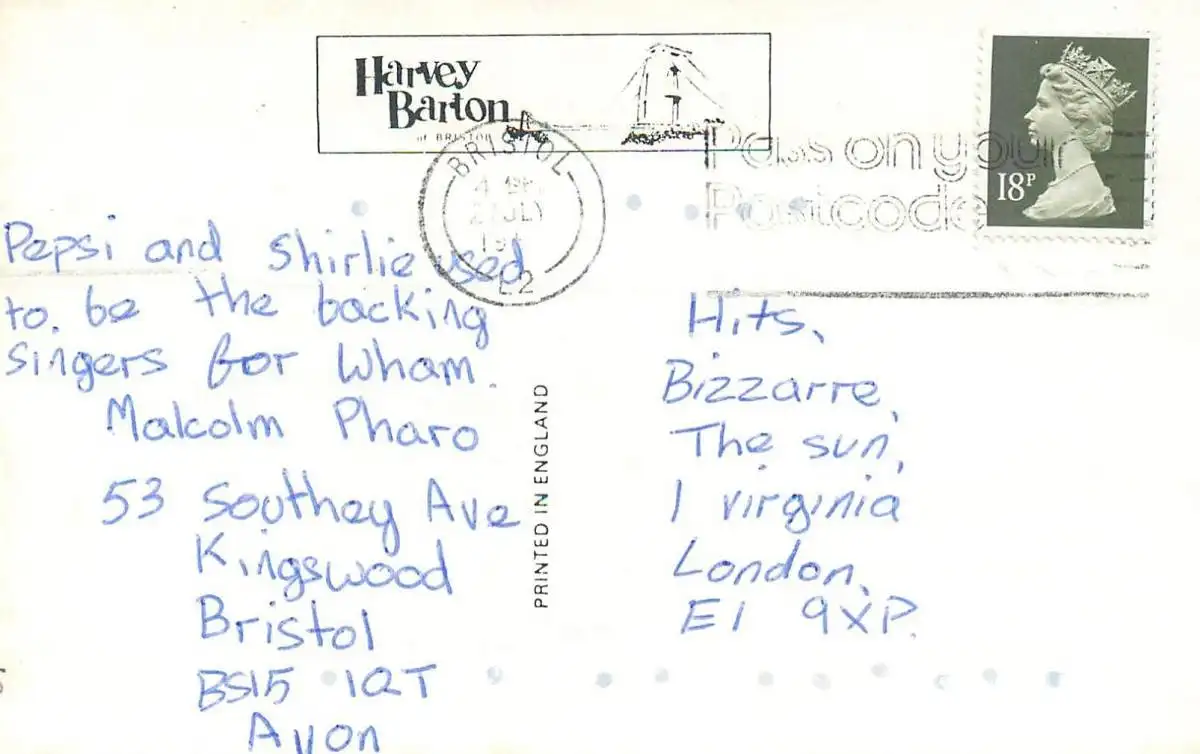 Harvey
Barton
of BRISTOL
BRISTOL
JULY
Pass on your
Postcode
18P
Pepsi and Shirlie used
to. be the backing
singers for Wham.
Malcolm Pharo
53 Southey Ave
Kingswood
Bristol
BS15 1QT
Avon
PRINTED IN ENGLAND
Hits,
Bizzarre,
The sun,
1 virginia
London,
E1 9XP.